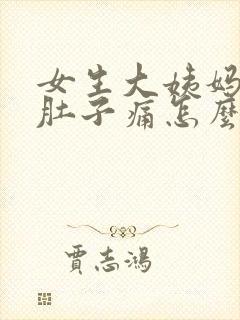 女生大姨妈
肚子痛怎麼
賈志鴻